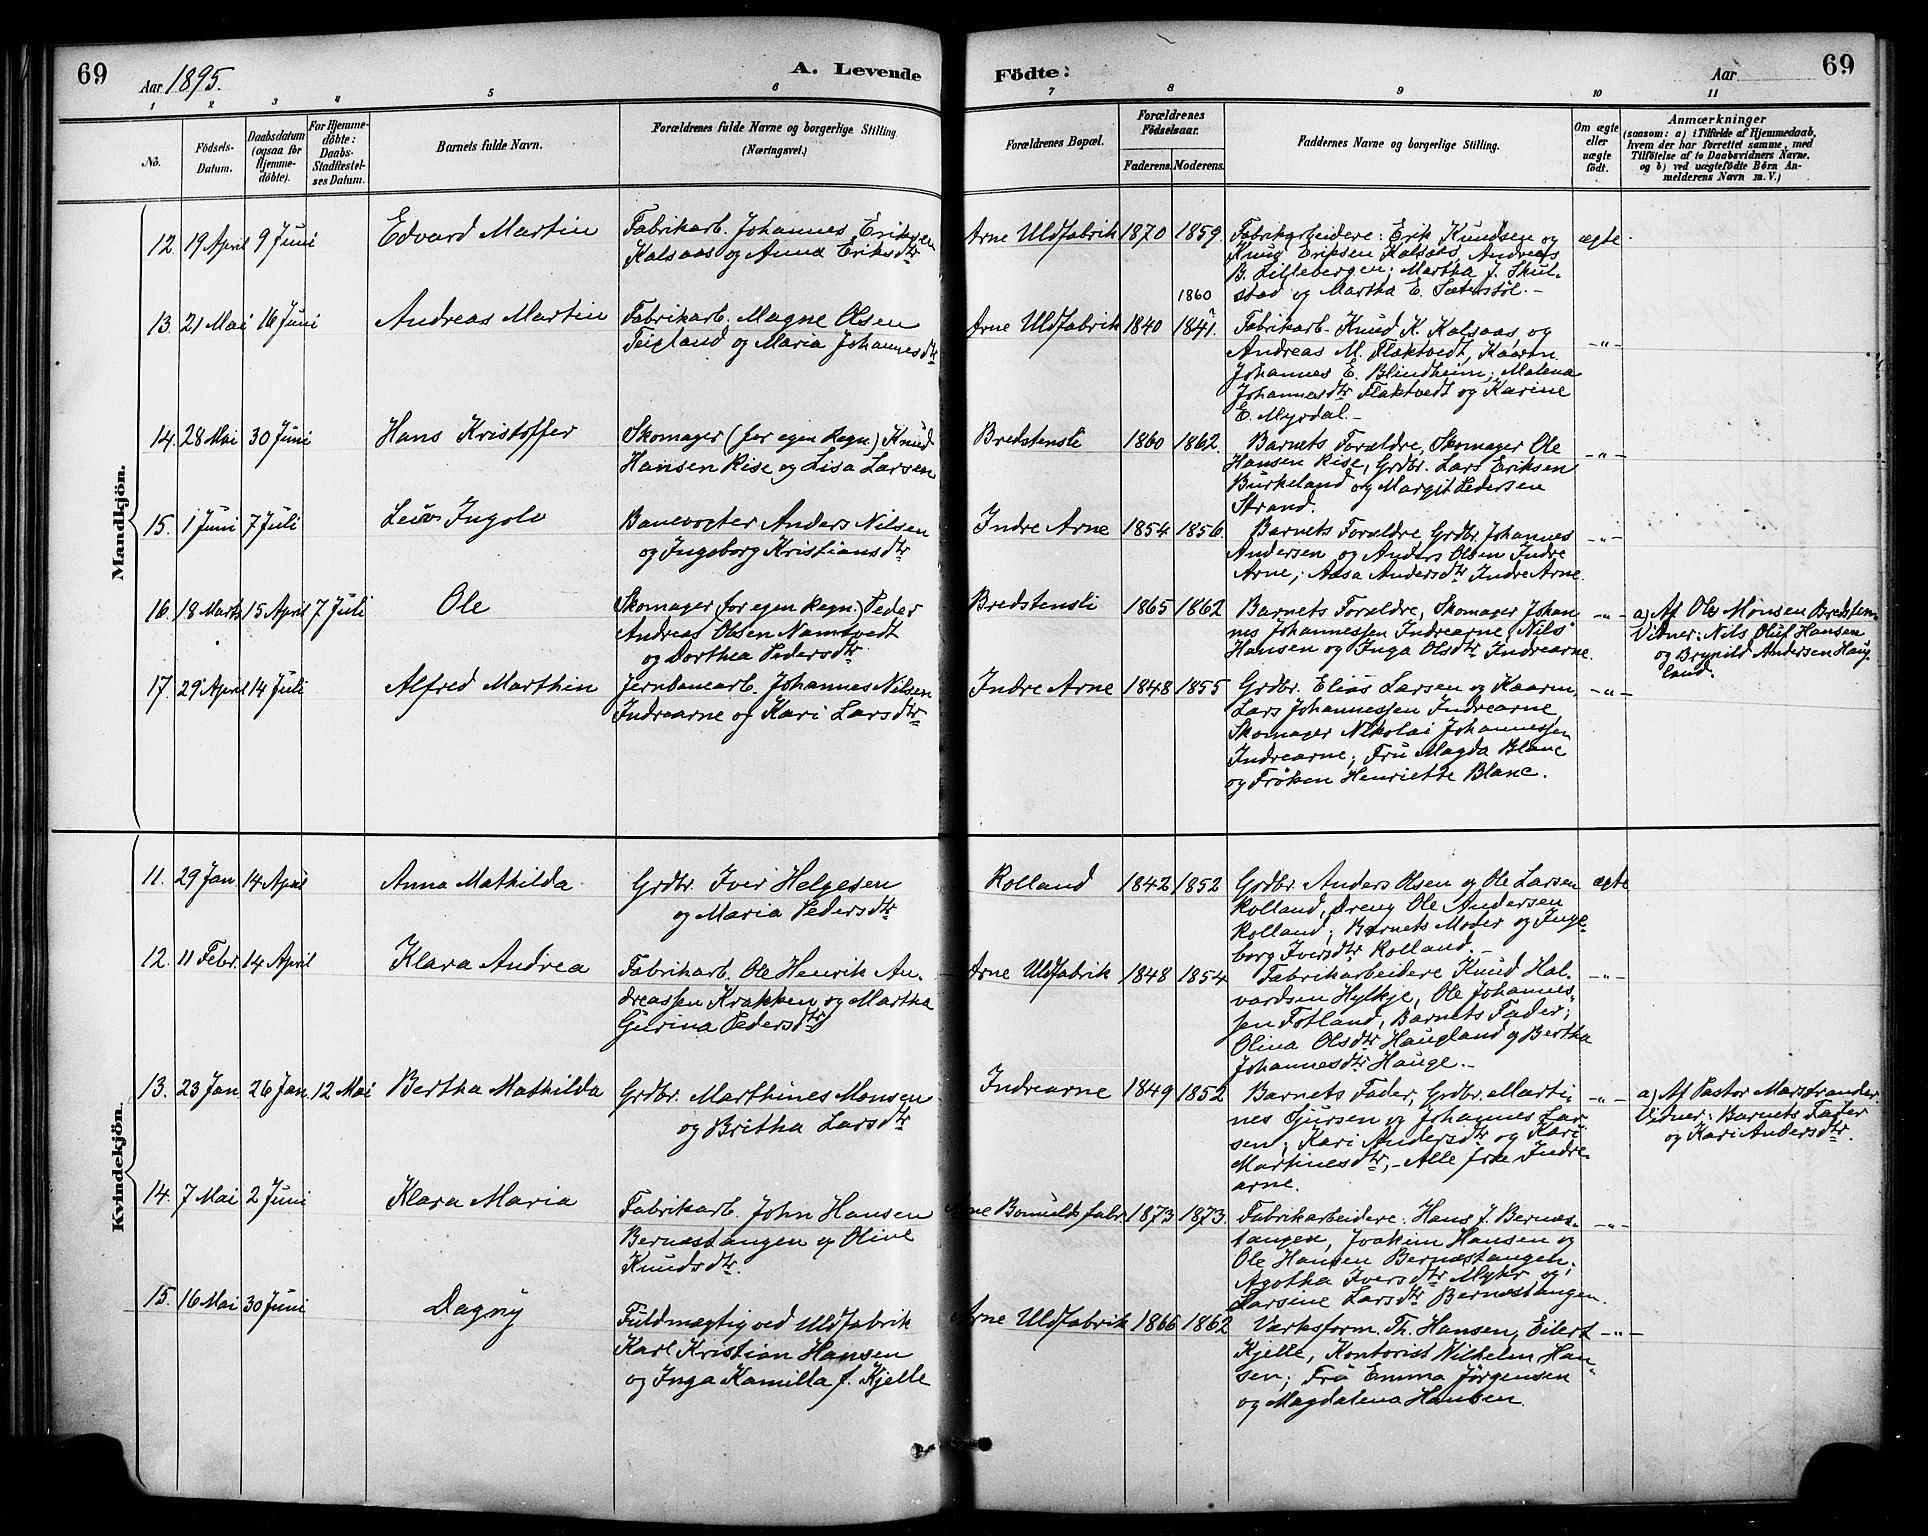 69
Aar 1895.
A. Levende
Födte:
Aar
69
1 2 3 4 5 6 7 8 9 10 11
No.
Födsels-
Datum.
Daabsdatum
(ogsaa for
Hjemme-
döbte).
For Hjemme-
döbte:
Daabs-
Stadfæstel-
ses Datum.
Barnets fulde Navn.
Forældrenes fulde Navne og borgerlige Stilling.
(Næringsvei.)
Forældrenes Bopæl.
Forældrenes
Födselsaar.
Faderens. Moderens.
Faddernes Navne og borgerlige Stilling.
Om ægte
eller
uægte
födt.
Anmærkninger
(saasom: a) i Tilfælde af Hjemmedaab,
hvem der har forrettet samme, med
Tilföielse af to Daabsvidners Navne,
og b) ved uægtefödte Börn An-
melderens Navn m. V.)
Mandkjön.
12. 19 April 9 Juni
Edvard Martin
Fabrikarb. Johannes Eriksen
Kalsaas og Anna Eriksdtr
Arne Uldfabrik 1870 1859
Fabrikarbeidere: Erik Knudsen og
Knug Eriksen Kalsaas, Andreas
B. Lillebergen; Martha J. Skul-
stad og Martha E. Sæterstöl. -
ægte
13. 21 Mai 16 Juni
Andreas Martin
Fabrikarb. Magne Olsen
Teigland og Maria Johannesdtr
Arne Uldfabrik 1840
1860
1841.
Fabrikarb. Knud K. Kalsaas, og
Andreas M. Flaktvedt, Kaarm.
Johannes E. Blindheim; Malena
Johannesdtr Flaktvedt og Karine
E. Myrdal. -
-„-
14. 28 Mai 30 Juni
Hans Kristoffer
Skomager (for egen Regn.) Knud
Hansen Rise og Lisa Larsen
Bredstensli 1860 1862.
Barnets Forældre, Skomager Ole
Hansen Rise, Grdbr. Lars Eriksen
Burkeland og Margit Pedersen
Strand.
-„-
15. 1 Juni 7 Juli
Ingolv
Banevogter Anders Nilsen
og Ingeborg Kristiansdtr
Indre Arne 1854 1856.
Barnets Forældre, Grdbr. Johannes
Andersen og Anders Olsen Indre
Arne; Aasa Andersdtr Indre Arne.
-„-
16. 18 Marts 15 April 7 Juli
Ole
Skomager (for egen Regn.) Peder
Andreas Olsen Namtvedt
og Dorthea Pedersdtr
Bredstensli 1865 1862
Barnets Forældre, Skomager Johan-
nes Johannessen Indrearne, Nils
Hansen og Inga Olsdtr Indrearne.
-„-
a) Af Ole Monsen Bredsten.
Vidner: Nils Oluf Hansen
og Brynild Andersen Haug-
land.
17. 29 April 14 Juli
Alfred Marthin
Jernbanearb. Johannes Nilsen
Indrearne og Kari Larsdtr
Indre Arne 1848 1855
Grdbr. Elias Larsen og Kaarm.
Lars Johannessen Indrearne,
Skomager Nikolai Johannessen
Indrearne; Fru Magda Blanc
og Fröken Henriette Blanc.
-„-
Kvindekjön.
11. 29 Jan 14 April
Anna Mathilda
Grdbr. Iver Helgesen
og Maria Pedersdtr
Rolland 1842 1852
Grdbr. Anders Olsen og Ole Larsen
Rolland, Dreng Ole Andersen
Rolland; Barnets Moder og Inge-
borg Iversdtr Rolland. -
ægte
12. 11 Febr. 14 April
Klara Andrea
Fabrikarb. Ole Henrik An-
dreassen Krakken og Martha
Gurina Pedersdtr
Arne Uldfabrik 1848 1854
Fabrikarbeidere Knud Hal-
vardsen Hylkje, Ole Johannes-
sen Fotland, Barnets Fader;
Olina Olsdtr Haugland og Bertha
Johannesdtr Hauge. -
-„-
13. 23 Jan 26 Jan. 12 Mai
Bertha Mathilda
Grdbr. Marthines Monsen
og Britha Larsdtr
Indrearne 1849 1852
Barnets Fader, Grdbr. Marti-
nes Sjursen og Johannes Lar-
sen; Kari Andersdtr og Kari
Martinesdtr, - Alle fra Indre-
arne.
-„-
a) Af Pastor Marstrander.
Vidner: Barnets Fader
og Kari Andersdtr.
14. 7 Mai 2 Juni
Klara Maria
Fabrikarb. John Hansen
Bernæstangen og Olive
Knudsdtr.
Arne Bomuldsfabr. 1873 1873.
Fabrikarbeidere: Hans J. Bernæs-
tangen, Joakim Hansen og
Ole Hansen Bernæstangen;
Agotha Iversdtr Mykr og
Larsine Larsdtr Bernæstangen.
-„-
15. 16 Mai 30 Juni
Dagny
Fuldmægtig ved Uldfabrik
Karl Kristian Hansen
og Inga Kamilla f. Kjelle
Arne Uldfabrik 1866 1862
Værksform. Th. Hansen, Eilert
Kjelle, Kontorist Wilhelm Han-
sen; Fru Emma Jörgensen
og Magdalena Hansen.
-„-